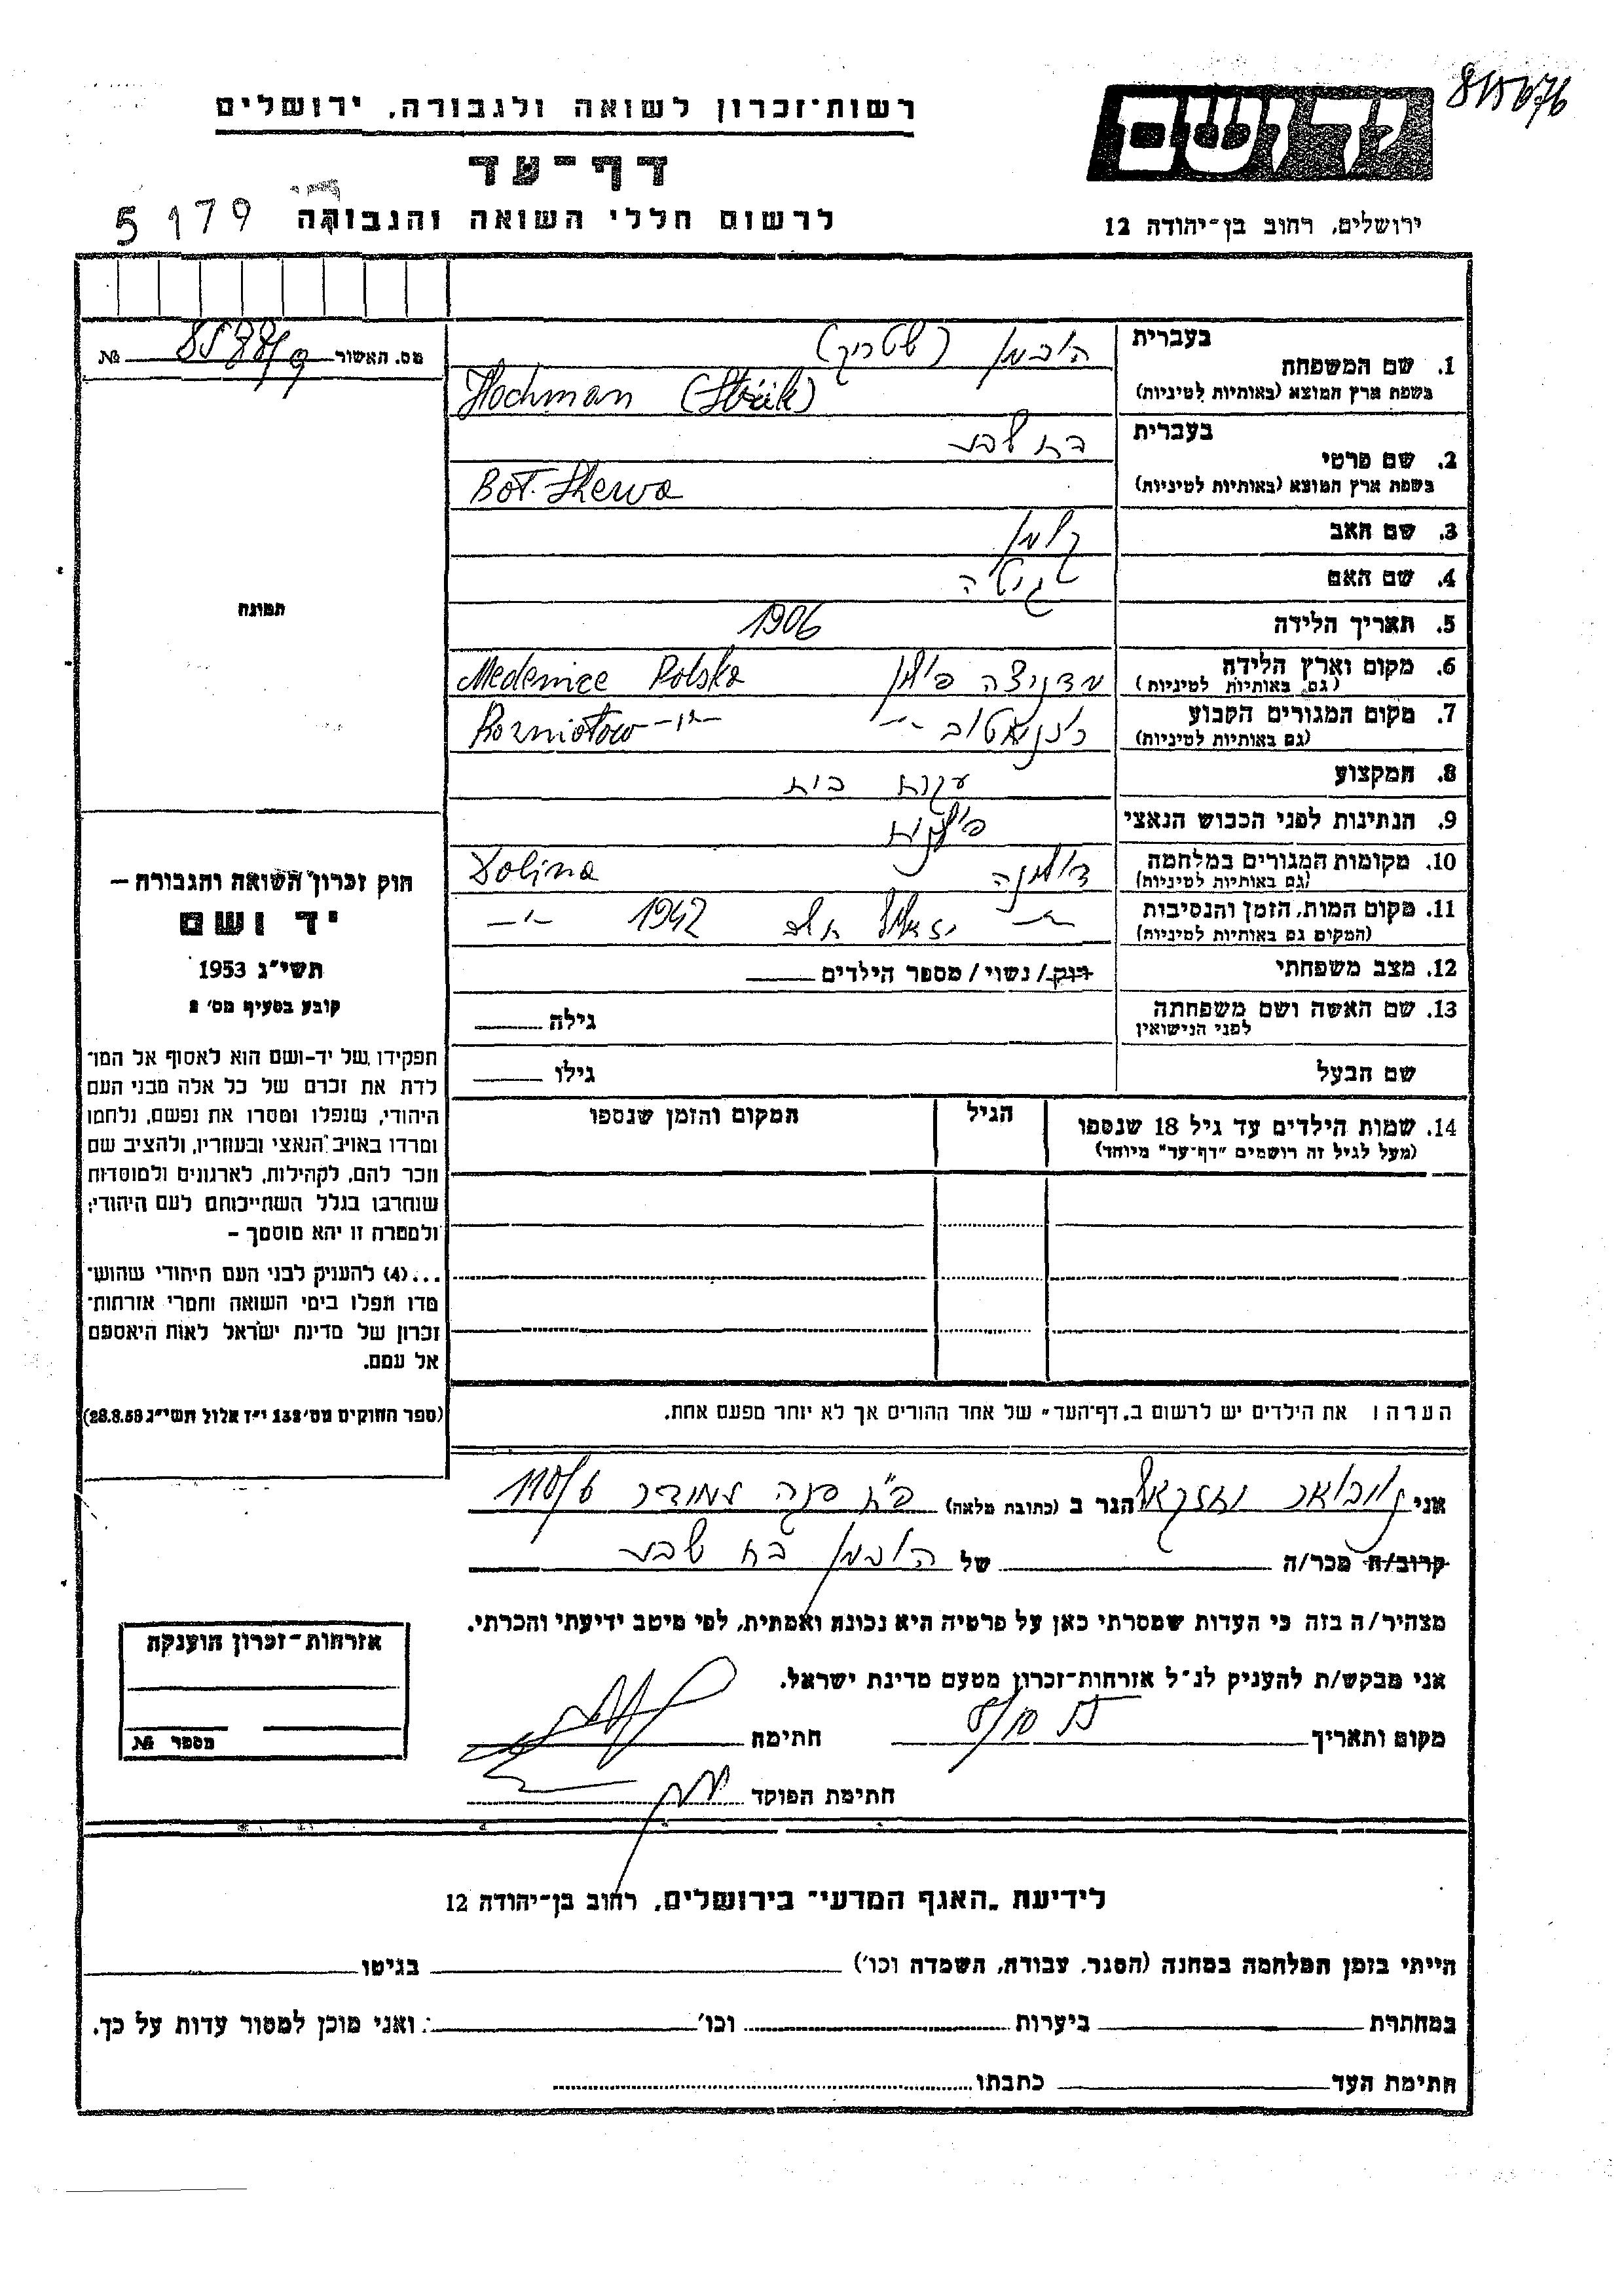 רשות־זכרון לשואה ולגבורה, ירושלים
דף־עד
לרשום חללי השואה והגבורה
5179
יד ושם
ירושלים, רחוב בן־יהודה 12
מס. האשור №
1. שם המשפחה
בעברית
הוכמן (שטריק)
בשפת ארץ המוצא (באותיות לטיניות)
Hochman
2. שם פרטי
בעברית
בת שבע
בשפת ארץ המוצא (באותיות לטיניות)
Bat-Shewa
3. שם האב
קלמן
4. שם האם
גיטה
5. תאריך הלידה
1906
6. מקום וארץ הלידה
(גם באותיות לטיניות)
מדניצה פולין Medenice Polska
7. מקום המגורים הקבוע
(גם באותיות לטיניות)
רוזניאטוב -"- Rozniatow -"-
8. המקצוע
עקרת בית
9. הנתינות לפני הכבוש הנאצי
פולנית
10. מקומות המגורים במלחמה
(גם באותיות לטיניות)
דולינה Dolina
11. מקום המות, הזמן והנסיבות
(המקום גם באותיות לטיניות)
-"- 1942 -"-
12. מצב משפחתי
רווק/ נשוי/ מספר הילדים
13. שם האשה ושם משפחתה
לפני הנישואין
גילה
שם הבעל
גילו
14. שמות הילדים עד גיל 18 שנספו
(מעל לגיל זה רושמים "דף־עד" מיוחד)
הגיל
המקום והזמן שנספו
הערה: את הילדים יש לרשום ב"דף־העד" של אחד ההורים אך לא יותר מפעם אחת.
תמונה
חוק זכרון השואה והגבורה —
יד ושם
תשי"ג 1953
קובע בסעיף מס' 2
תפקידו של יד-ושם הוא לאסוף אל המו־
לדת את זכרם של כל אלה מבני העם
היהודי, שנפלו ומסרו את נפשם, נלחמו
ומרדו באויב הנאצי ובעוזריו, ולהציב שם
וזכר להם, לקהילות, לארגונים ולמוסדות
שנחרבו בגלל השתייכותם לעם היהודי;
ולמטרה זו יהא מוסמך –
...(4) להעניק לבני העם היהודי שהוש־
מדו ונפלו בימי השואה והמרי אזרחות־
זכרון של מדינת ישראל לאות היאספם
אל עמם.
(ספר החוקים מס' 132 י"ז אלול תשי"ג 28.8.53)
אני הגר ב (כתובת מלאה)
קרוב/ה מכר/ה של הוכמן בת שבע
מצהיר/ה בזה כי העדות שמסרתי כאן על פרטיה היא נכונה ואמתית, לפי מיטב ידיעתי והכרתי.
אני מבקש/ת להעניק לנ"ל אזרחות־זכרון מטעם מדינת ישראל.
מקום ותאריך חתימה
חתימת הפוקד
אזרחות־זכרון הוענקה
מספר №
לידיעת "האגף המדעי" בירושלים, רחוב בן־יהודה 12
הייתי בזמן המלחמה במחנה (הסגר, עבודה, השמדה וכו') בגיטו
במחתרת ביערות וכו' ואני מוכן למסור עדות על כך.
חתימת העד כתבתו